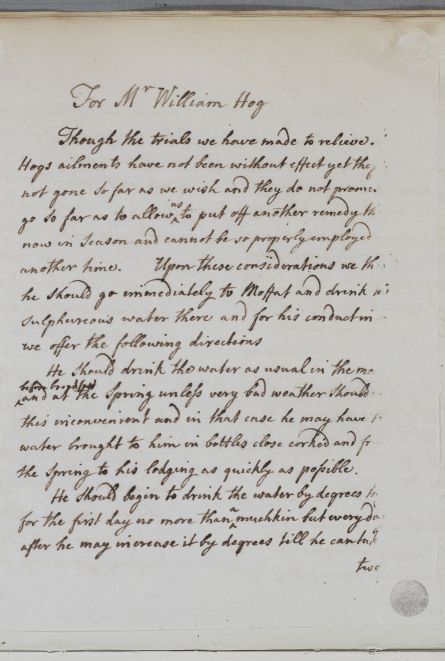 For Mr William Hog
Though the trials we have made to relieve
Hogs ailments have not been without effect yet they
not gone so far as we wish and they do not promise
go so far as to allow us to put off another remedy
now in season and cannot be so properly employed
another time. Upon these considerations we
he should go immediately to Moffat and drink
sulphureous water there and for his conduct in
we offer the following directions
He should drink the water as usual in the
before breakfast
and at the Spring unless very bad weather should
this inconvenient and in that case he may have
water brought to him in bottles close corked and
the Spring to his lodging as quickly as possible.
He should begin to drink the water by degrees
for the first day no more than a muchkin but every
after he may increase it by degrees till he can
two